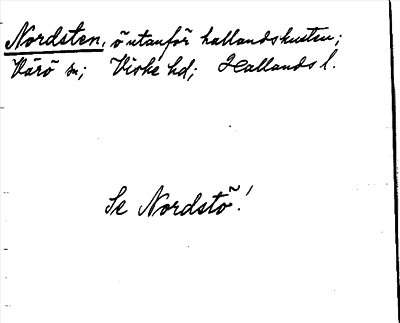 Nordsten, ö utanför hallandskusten;
Värö sn; Viske hd; Hallands l.
Se Nordstö!